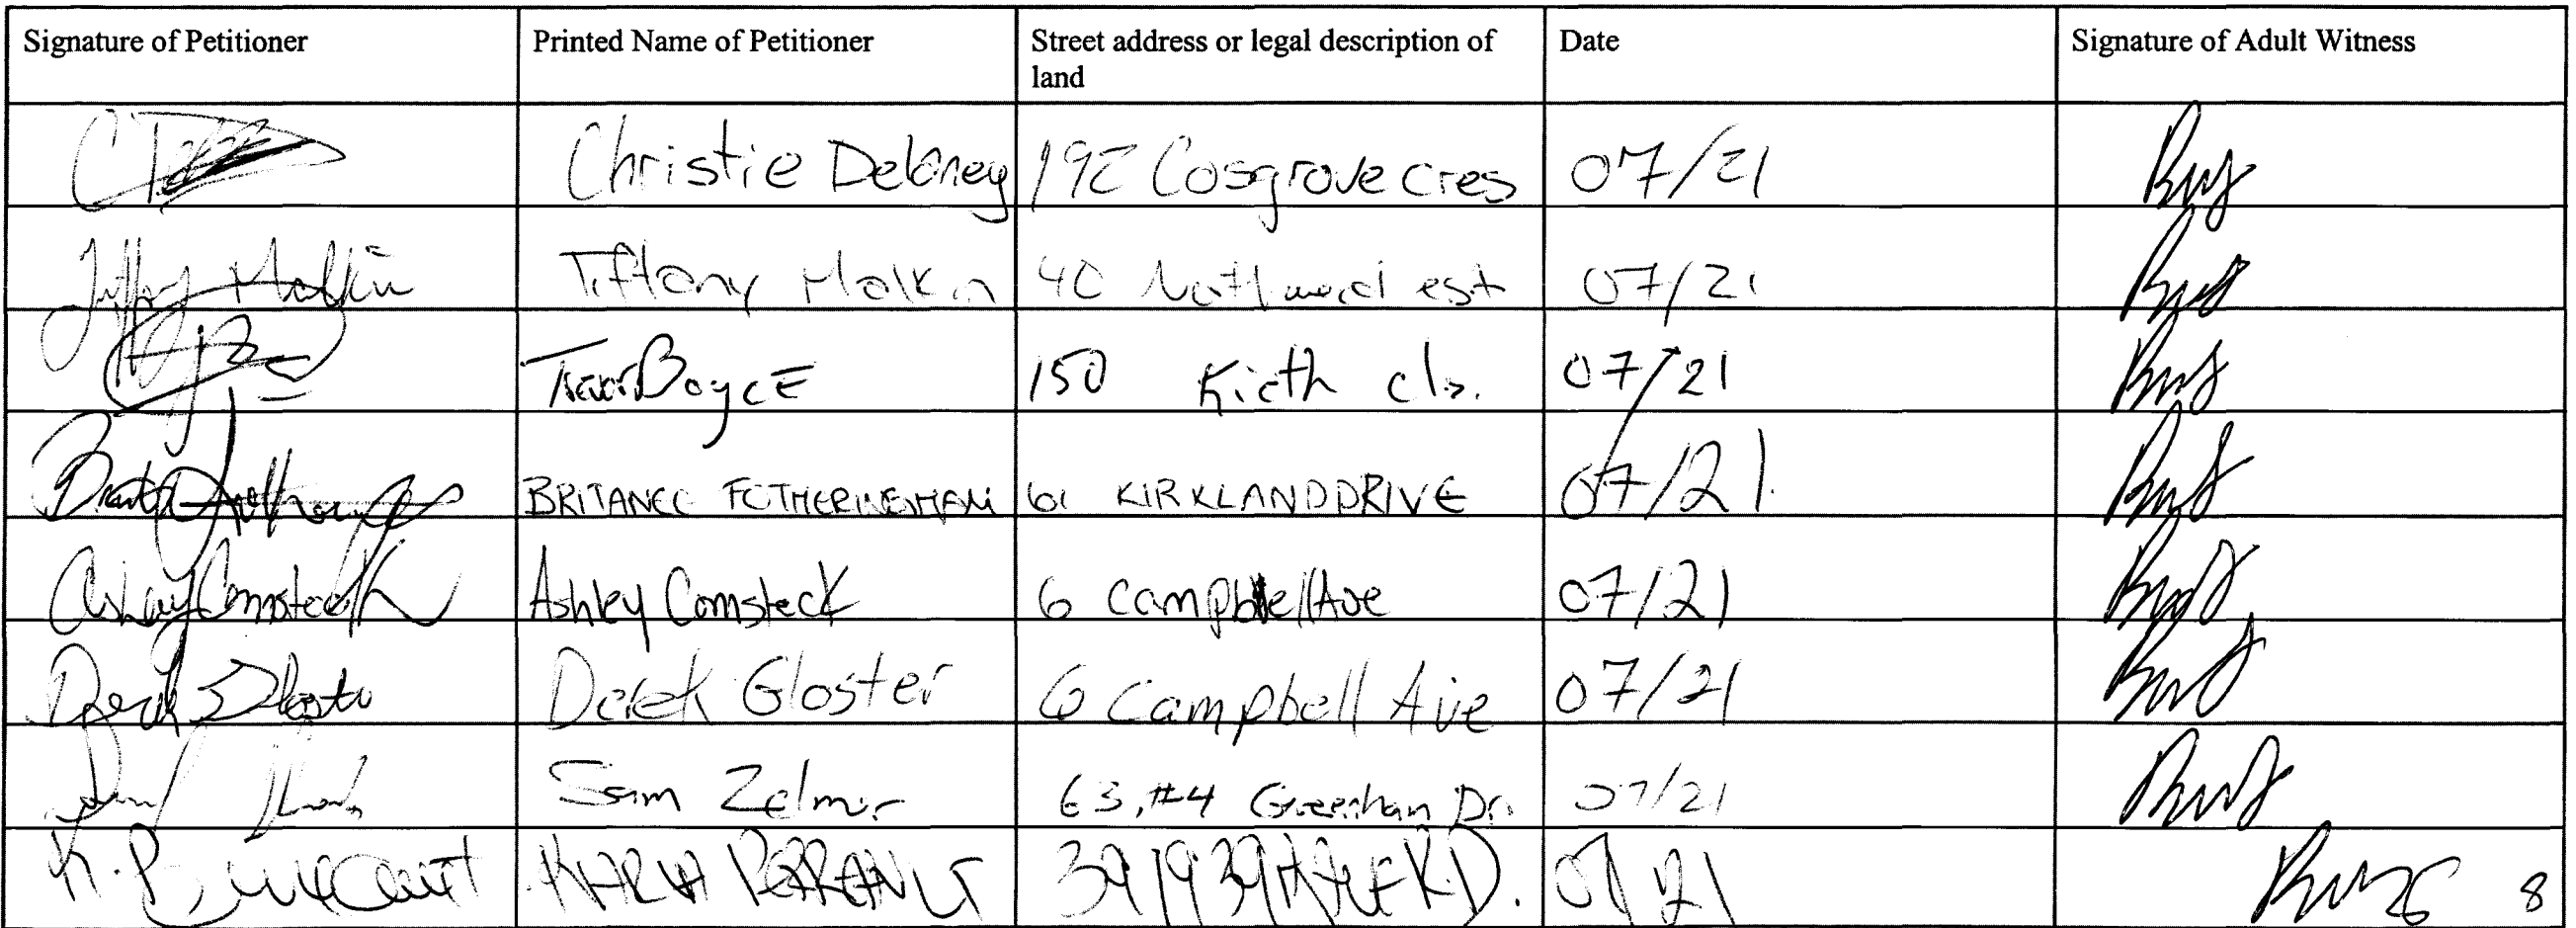 Signature of Petitioner Printed Name of Petitioner Street address or legal description of Date Signature of Adult Witness
land
Christie Delaney 192 Cosgrove cres 07/21
Tiffany Malkin Tiffany Malkin 40 est 07/21
Trevor BoycE 150 Kieth cls. 07/21
BRITANEE FOTHERINGHAM 61 KIRKLAND DRIVE 07/21
Ashley Comsteck Ashley Comsteck 6 Campbell Ave 07/21
Derek Gloster Derek Gloster 6 Campbell Ave 07/21
Sam Zelmer 63, #4 Dr. 07/21
K. P 07/21
8